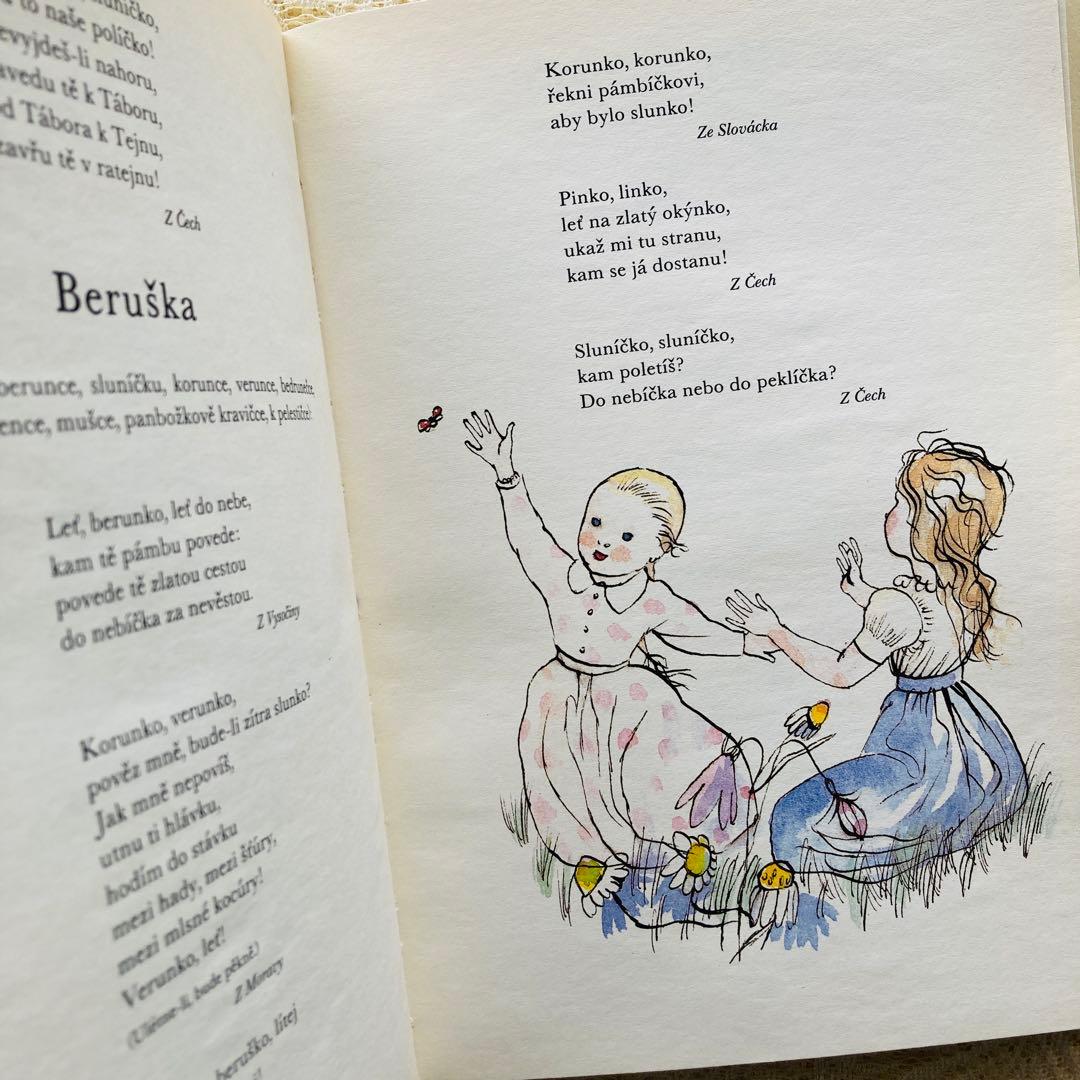 to naše políčko!
nevyjdeš-li nahoru,
tě k Táboru,
od Tábora k Tejnu,
zavřu tě v ratejnu!
Z Čech
Beruška
berunce, sluníčku, korunce, verunce, bedrunce,
mušce, panbožkově kravičce, k pelestičce:
Leť, berunko, leť do nebe,
kam tě pámbu povede:
povede tě zlatou cestou
do nebíčka za nevěstou.
Z Vysočiny
Korunko, verunko,
pověz mně, bude-li zítra slunko?
Jak mně nepovíš,
utnu ti hlávku,
hodím do stávku
mezi hady, mezi šťúry,
mezi mlsné kocúry!
Verunko, leť!
(Uléme-li, bude pěkně.)
Z Moravy
beruško, lítej
Korunko, korunko,
řekni pámbíčkovi,
aby bylo slunko!
Ze Slovácka
Pinko, linko,
leť na zlatý okýnko,
ukaž mi tu stranu,
kam se já dostanu!
Z Čech
Sluníčko, sluníčko,
kam poletíš?
Do nebíčka nebo do peklíčka?
Z Čech